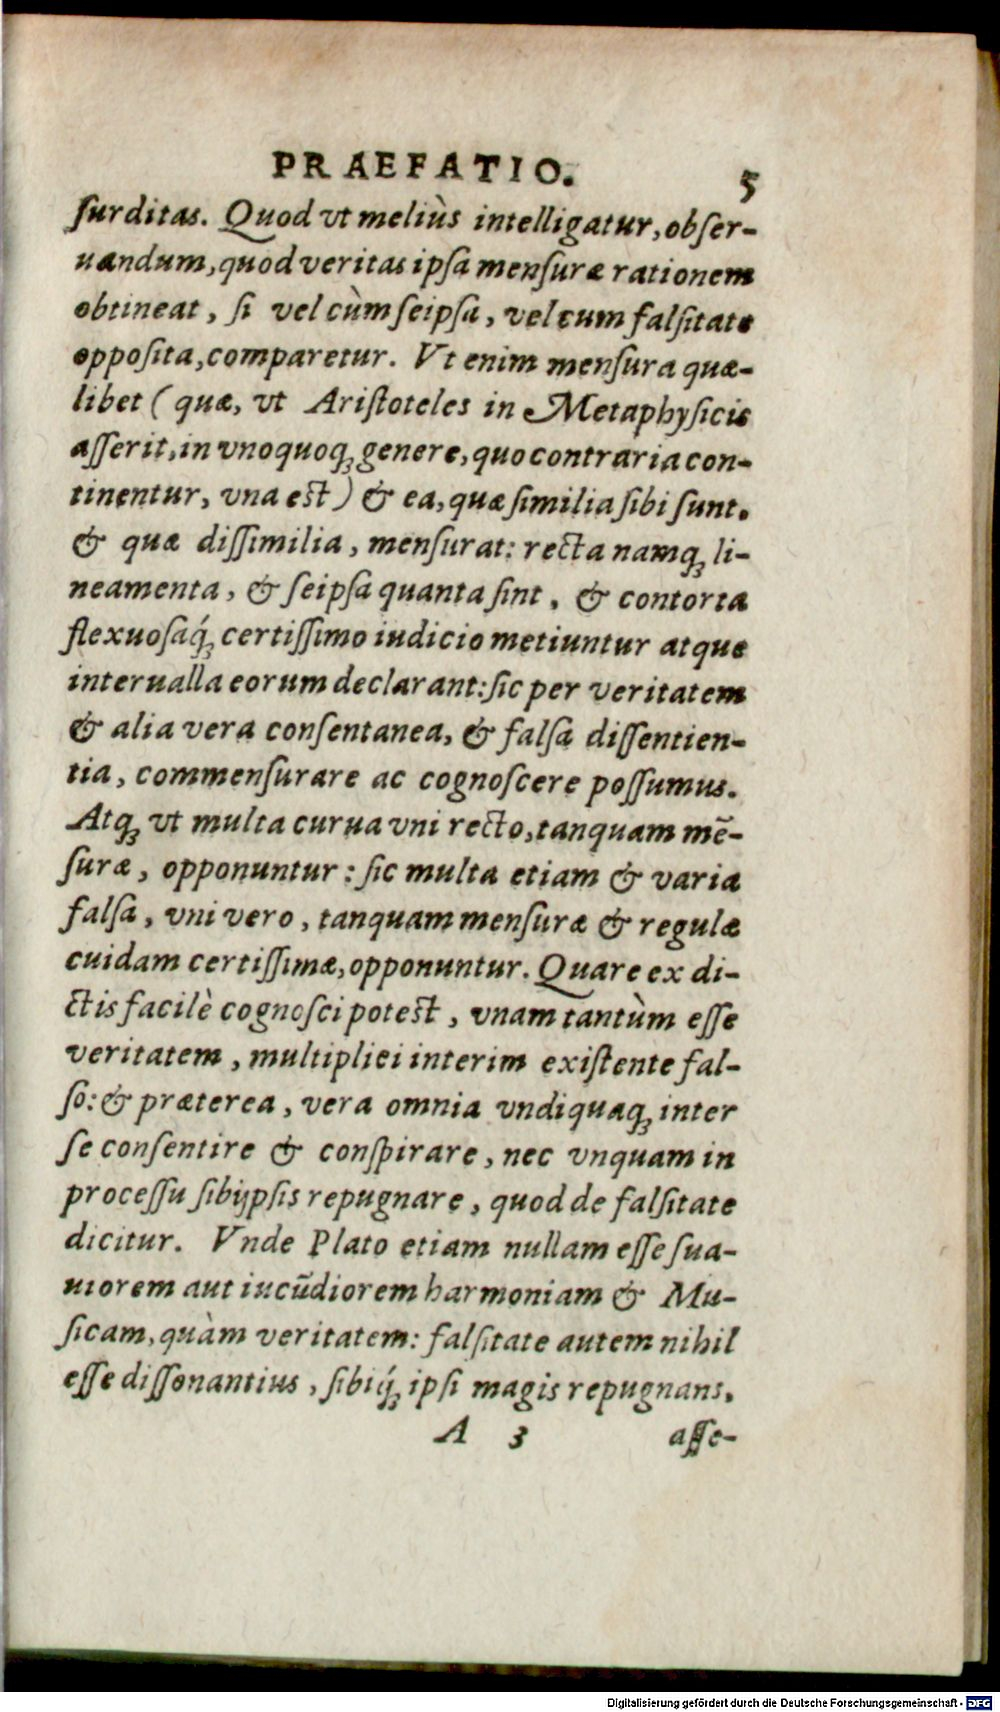 PRAEFATIO. 5
ſurditas. Quod vt meliùs intelligatur, obſer-
uandum, quod veritas ipſa menſuræ rationem
obtineat, ſi vel cùm ſeipſa, vel cum falſitate
oppoſita, comparetur. Vt enim menſura quæ-
libet (quæ, vt Ariſtoteles in Metaphyſicis
aſſerit, in vnoquoq; genere, quo contraria con-
tinentur, vna est) & ea, quæ ſimilia ſibi ſunt.
& quæ diſſimilia, menſurat: recta namq; li-
neamenta, & ſeipſa quanta ſint, & contorta
flexuoſaq́; certiſſimo iudicio metiuntur atque
interualla eorum declarant: ſic per veritatem
& alia vera conſentanea, & falſa diſſentien-
tia, commenſurare ac cognoſcere poſſumus.
Atq; vt multa curua vni recto, tanquam mē-
ſuræ, opponuntur: ſic multa etiam & varia
falſa, vni vero, tanquam menſuræ & regulæ
cuidam certiſſimæ, opponuntur. Quare ex di-
ctis facilè cognoſci potest, vnam tantùm eſſe
veritatem, multiplici interim exiſtente fal-
ſo: & præterea, vera omnia vndiquaq; inter
ſe conſentire & conſpirare, nec vnquam in
proceſſu ſibijpſis repugnare, quod de falſitate
dicitur. Vnde Plato etiam nullam eſſe ſua-
uiorem aut iucūdiorem harmoniam & Mu-
ſicam, quàm veritatem: falſitate autem nihil
eſſe diſſonantius, ſibiq́; ipſi magis repugnans,
A 3 aſſe-
Digitalisierung gefördert durch die Deutsche Forschungsgemeinschaft - DFG